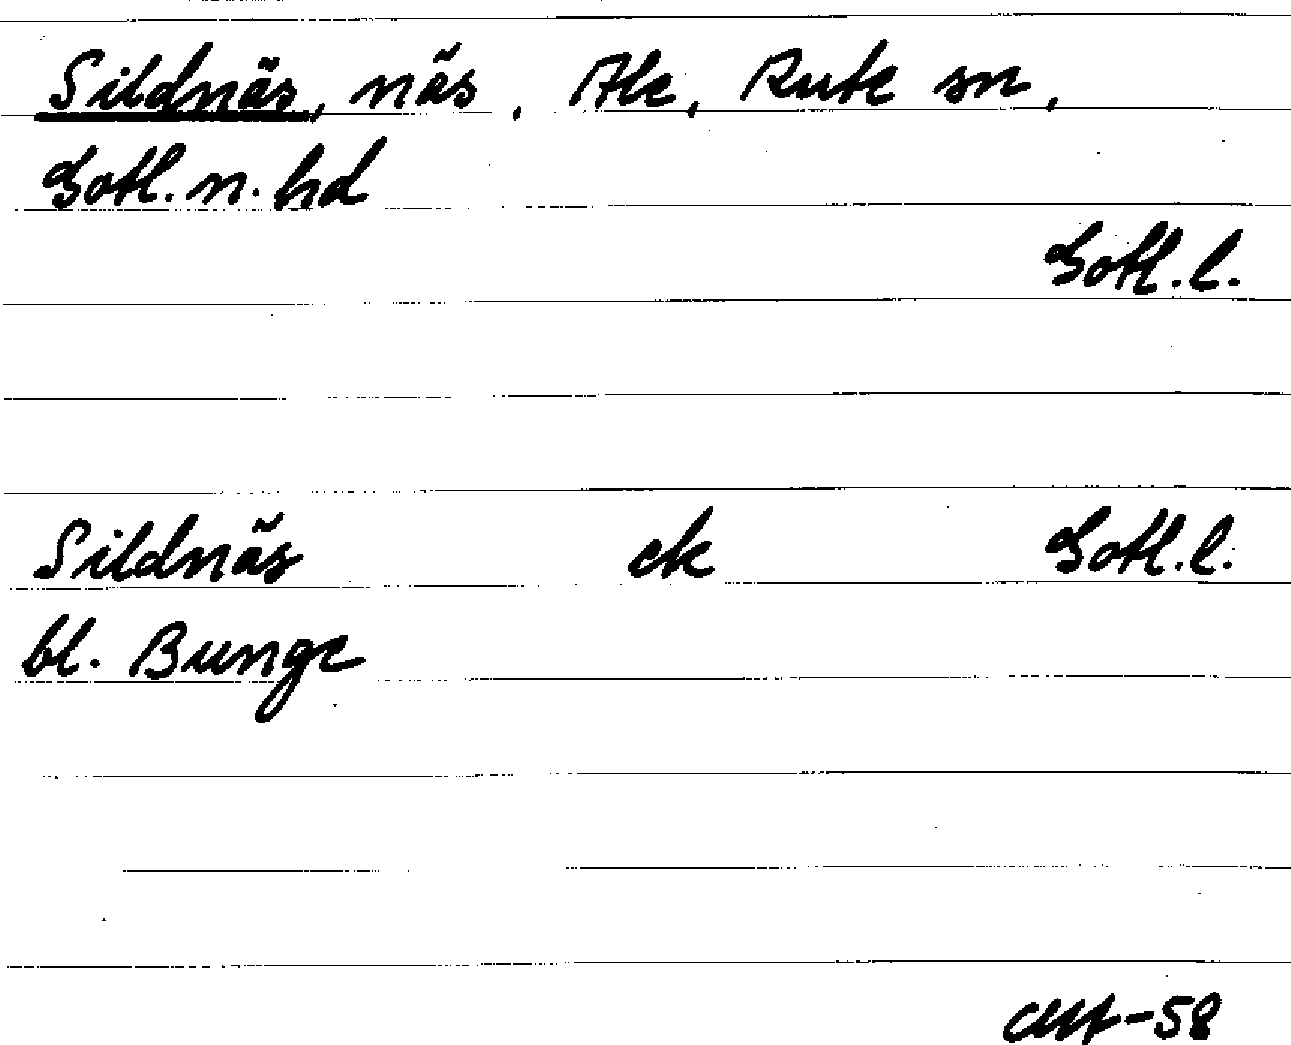 Sildnäs, näs, Ale, Rute sn,
Gotl. n. hd
Gotl. l.
Sildnäs ek Gotl. l.
bl. Bunge
-58